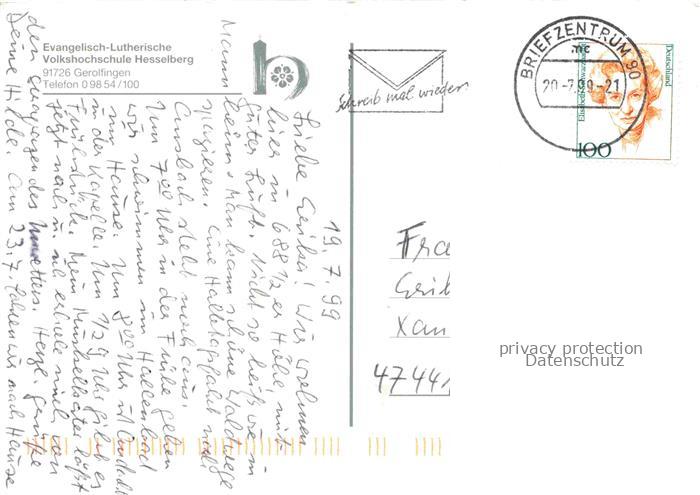 Evangelisch-Lutherische
Volkshochschule Hesselberg
91726 Gerolfingen
Telefon 0 98 54/100
Schreib mal wieder
BRIEFZENTRUM 90
mc
20-7.99-21
Deutschland
100
19.7.99
Liebe Gerda! Wir wohnen
hier in 688 1/2 er Höhe, mit
guter Luft. Nicht so heiß wie in
Mann kann schöne Waldwege
Eine Halbtagsfahrt nach
Ansbach steht noch aus.
Um 7 00 Uhr in der Frühe gehen
wir schwimmen im Hallenbad
im Hause. Um 8 00 Uhr ist Andacht
in der Kapelle. Um 1/2 9 Uhr gibt es
Frühstück. Mein Muskelkater läßt
jetzt nach u. ich erhole mich von
den des Herzl. Grüße
Deine Hilde. Am 23.7. fahren wir nach Hause
Fra
Xan
4744
privacy protection
Datenschutz